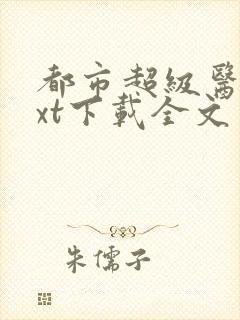 都市超級醫
xt下載全文
朱儒子